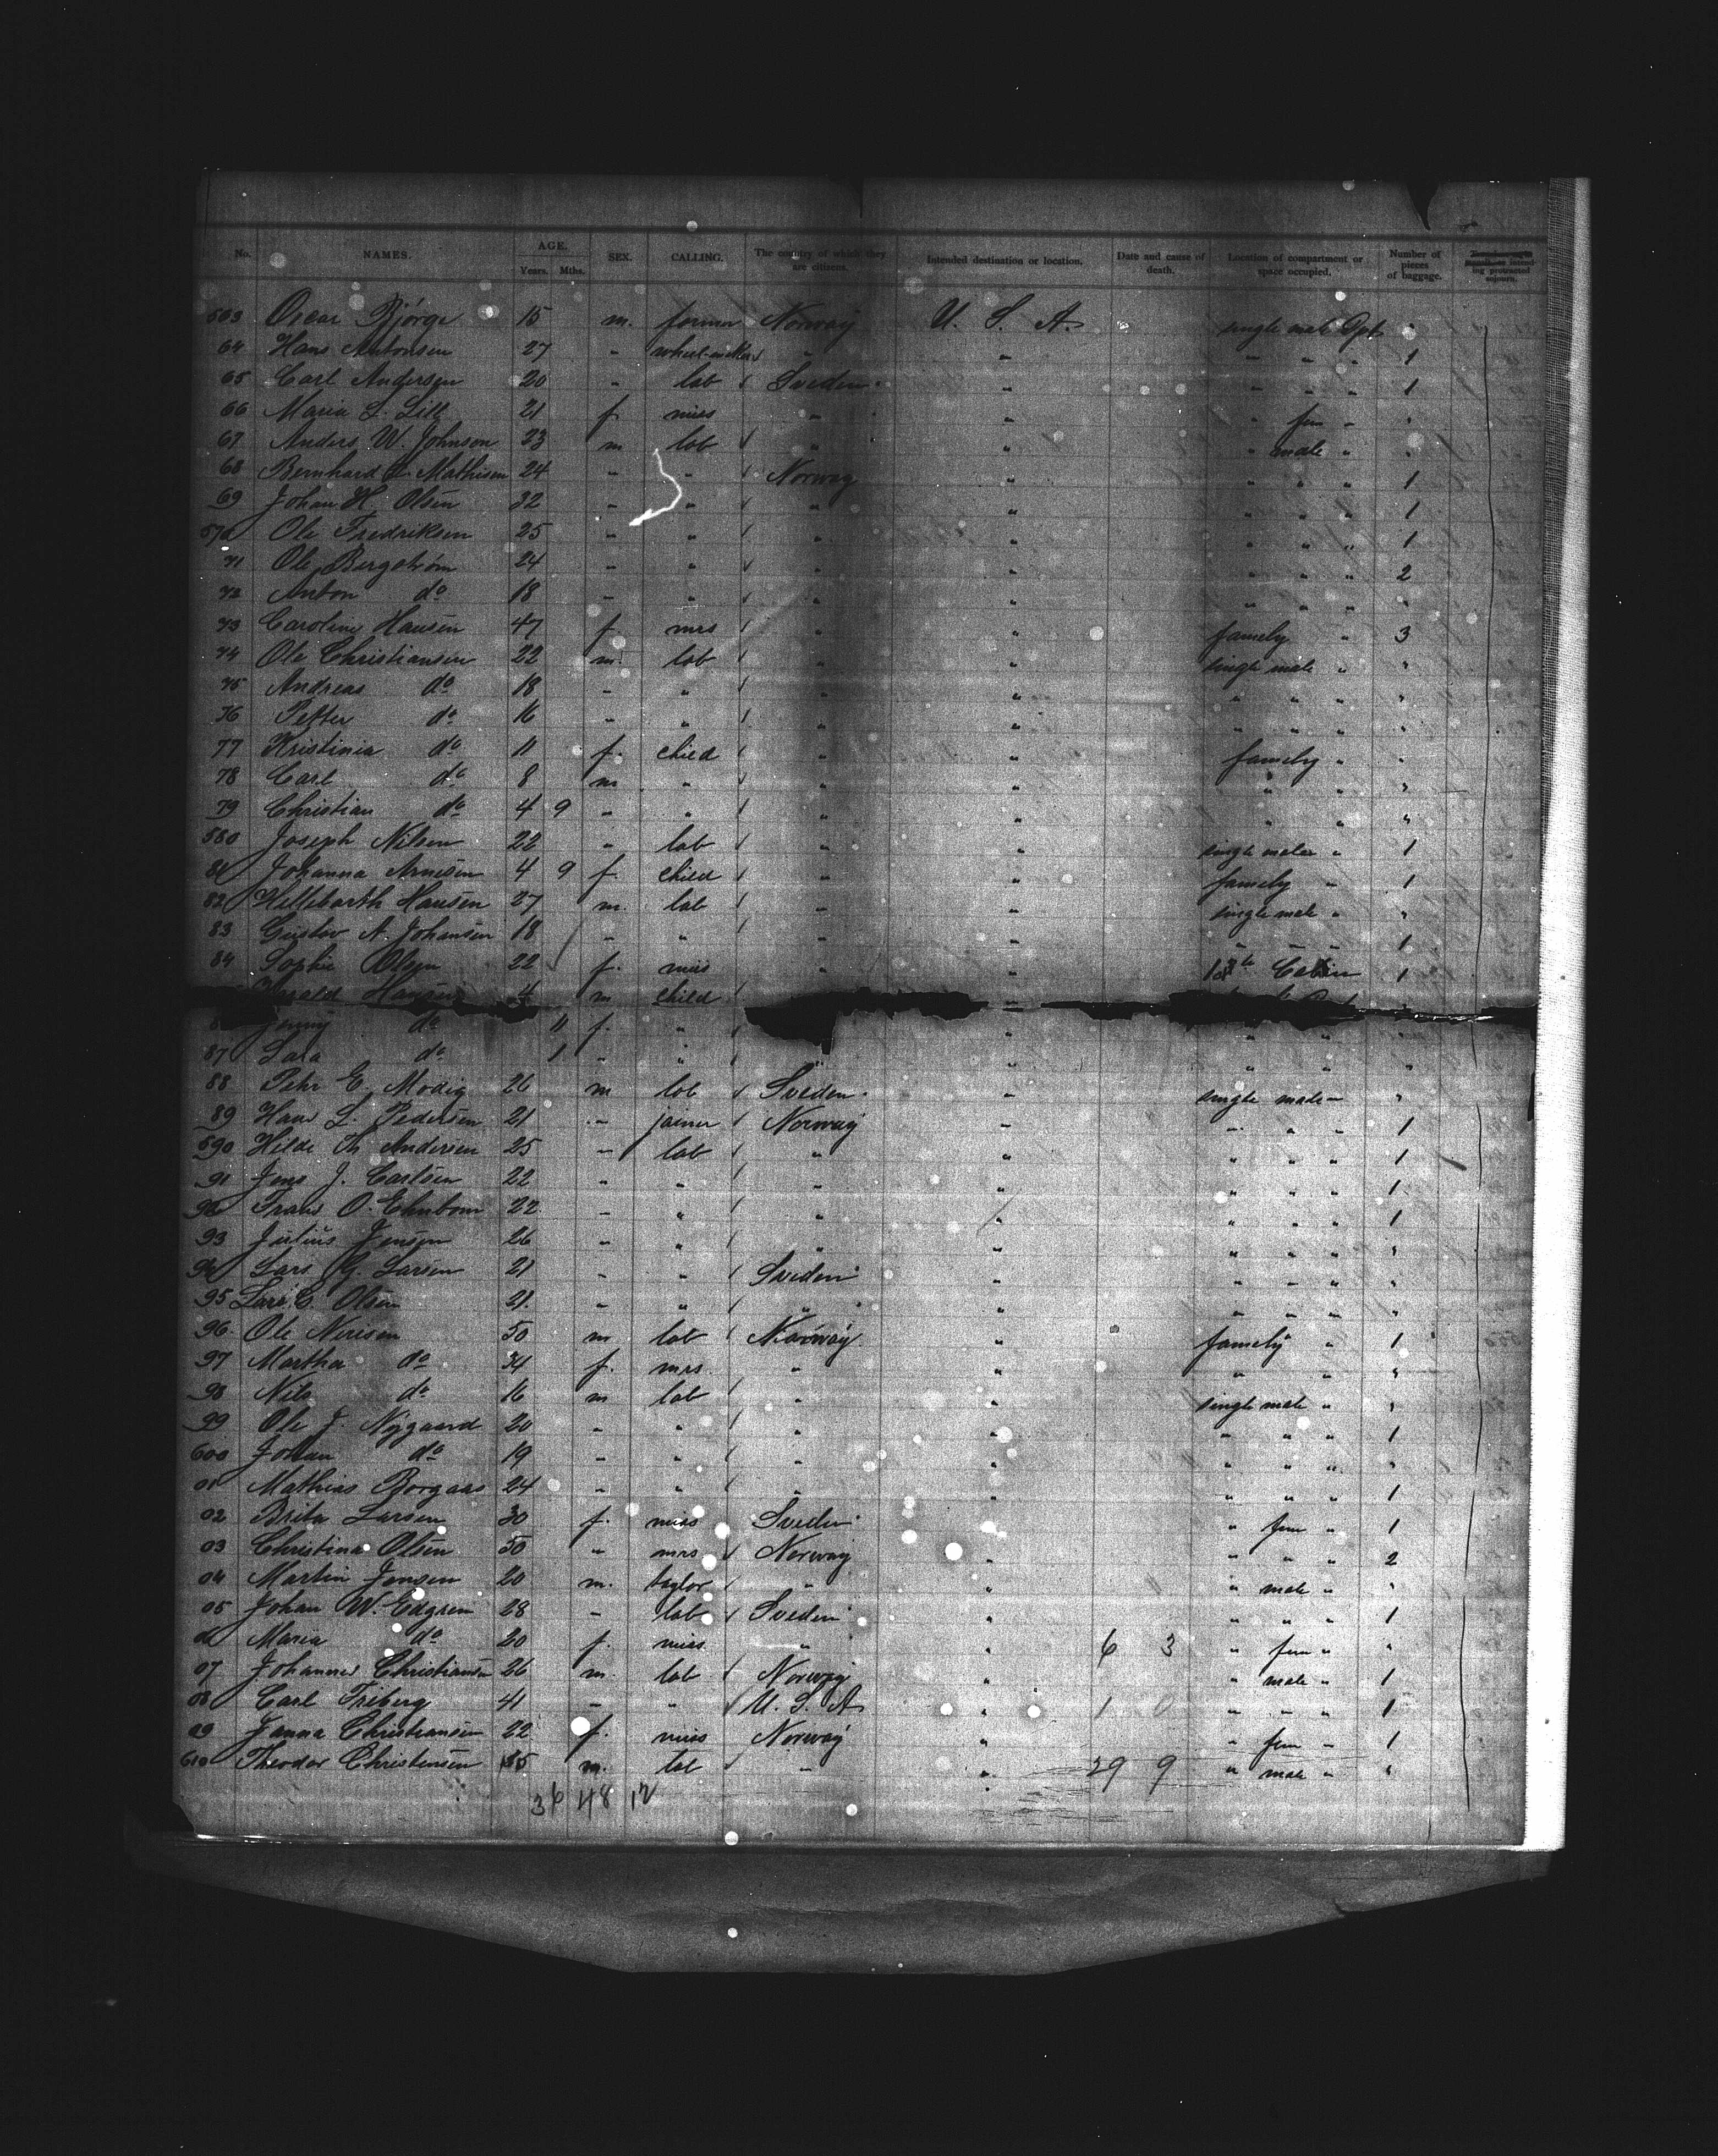 No. NAMES. AGE. Years. Mths. SEX. CALLING. The country of which they are citizens. Intended destination or location. Date and cause of death. Location of compartment or space occupied. Number of pieces of baggage.
563 Oscar Bjørge 15 m. farmer Norway U. S. A. single male Cpt "
64 Hans Antonsen 27 " " " " " " 1
65 Carl Andersen 20 " lab Sveden " " " " 1
66 Maria L. Lill 21 f miss " " " fem " "
67 Anders W. Johnson 23 m lab " " " male " "
68 Bernhard Mathisen 24 " " Norway " " " " 1
69 Johan H. Olsen 32 " " " " " " " 1
570 Ole Fredriksen 25 " " " " " " " 1
71 Ole Bergstrøm 24 " " " " " " " 2
72 Anton do 18 " " " " " " " "
73 Caroline Hansen 47 f mrs " " famely " 3
74 Ole Christiansen 22 m. lab " " single male " "
75 Andreas do 18 " " " " " " " "
76 Petter do 16 " " " " " " " "
77 Kristinia do 11 f. child " " famely " "
78 Carl do 8 m " " " " " "
79 Christian do 4 9 " " " " " " "
580 Joseph Nilsen 22 " lab " " single male " 1
81 Johanna Arnesen 4 9 f child " " famely " 1
82 Hansen 27 m. lab " " single male " "
83 Gustav A. Johansen 18 " " " " " " " 1
84 Sophie Olsen 22 f. miss " " Cabin 1
Hansen 4 m child "
Jenny do 11 f. " " " "
87 Lara do 1 " " " " " "
88 Pehr E. Modig 26 m lab Sveden " single male " "
89 Hans L. Pedersen 21 " joiner Norway " " " " 1
590 Th Andersen 25 " lab " " " " " 1
91 Jens J. Carlsen 22 " " " " " " " 1
92 Frans O. 22 " " " " " " " 1
93 Julius Jensen 26 " " " " " " " "
94 Lars G. Larsen 21 " " Sveden " " " " "
95 Lars C. Olsen 21. " " " " " " " "
96 Ole Nerisen 50 m lab Norway " famely " 1
97 Martha do 34 f. mrs. " " " " "
98 Nils do 16 m lab " " single male " "
99 Ole J. Nygaard 20 " " " " " " " 1
600 Johan do 19 " " " " " " " "
01 Mathias Borgaas 24 " " " " " " " 1
02 Brita Larsen 30 f. miss Sveden " " fem " 1
03 Christina Olsen 50 " mrs Norway " " " " 2
04 Martin Jensen 20 m. taylor " " " male " "
05 Johan W. Edgren 28 " lab Sveden " " " " 1
Maria do 20 f. miss " " 6 3 " fem " "
07 Johannes Christiansen 26 m. lab Norway " " male " 1
08 Carl Friberg 41 " " U. S. A " 1 0 " " " 1
09 Janna Christiansen 22 f. miss Norway " " fem " 1
610 Theodor Christensen 35 m. lab " " 29 9 " male " "
36 48 12